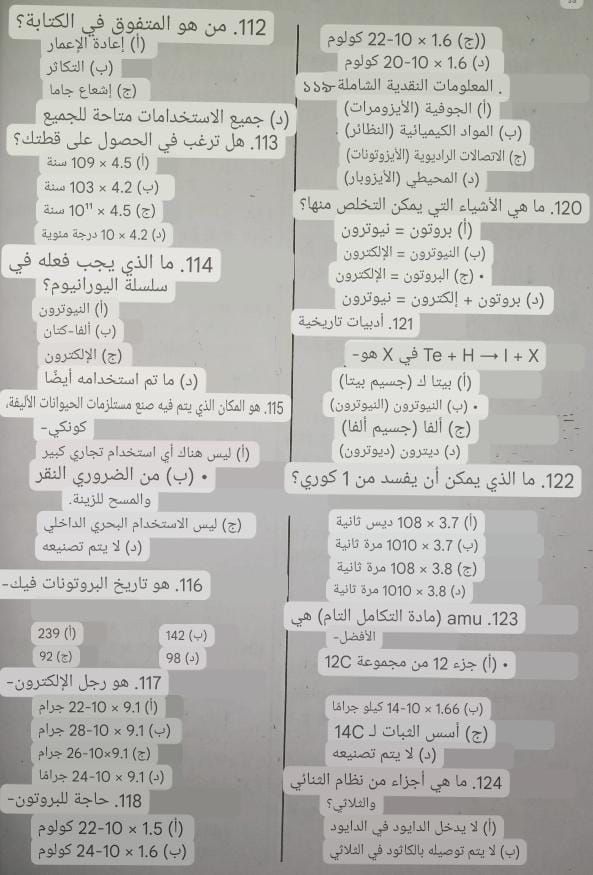 112. من هو المتفوق في الكتابة؟
(أ) إعادة الإعمار
(ب) التكاثر
(ج) إشعاع جاما
(د) جميع الاستخدامات متاحة للجميع
113. هل ترغب في الحصول على قطتك؟
(أ) 4.5 × 109 سنة
(ب) 4.2 × 103 سنة
(ج) 4.5 × 10¹¹ سنة
(د) 4.2 × 10 درجة مئوية
114. ما الذي يجب فعله في
سلسلة اليورانيوم؟
(أ) النيوترون
(ب) ألفا-كتان
(ج) الإلكترون
(د) ما تم استخدامه أيضًا
115. هو المكان الذي يتم فيه صنع مستلزمات الحيوانات الأليفة،
كونكي-
(أ) ليس هناك أي استخدام تجاري كبير
• (ب) من الضروري النقر
والمسح للزينة.
(ج) ليس الاستخدام البحري الداخلي
(د) لا يتم تصنيعه
116. هو تاريخ البروتونات فيك-
(أ) 239 (ب) 142
(ج) 92 (د) 98
117. هو رجل الإلكترون-
(أ) 9.1 × 10-22 جرام
(ب) 9.1 × 10-28 جرام
(ج) 9.1×10-26 جرام
(د) 9.1 × 10-24 جرامًا
118. حاجة للبروتون-
(أ) 1.5 × 10-22 كولوم
(ب) 1.6 × 10-24 كولوم
((ج) 1.6 × 10-22 كولوم
(د) 1.6 × 10-20 كولوم
. المعلومات النقدية الشاملة-
(أ) الجوفية (الأيزومرات)
(ب) المواد الكيميائية (النظائر)
(ج) الاتصالات الراديوية (الأيزوتونات)
(د) المحيطي (الأيزوبار)
120. ما هي الأشياء التي يمكن التخلص منها؟
(أ) بروتون = نيوترون
(ب) النيوترون = الإلكترون
• (ج) البروتون = الإلكترون
(د) بروتون + إلكترون = نيوترون
121. أدبيات تاريخية
Te + H → I + X في X هو-
(أ) بيتا ك (جسيم بيتا)
• (ب) النيوترون (النيوترون)
(ج) ألفا (جسيم ألفا)
(د) ديترون (ديوترون)
122. ما الذي يمكن أن يفسد من 1 كوري؟
(أ) 3.7 × 108 ديس ثانية
(ب) 3.7 × 1010 مرة ثانية
(ج) 3.8 × 108 مرة ثانية
(د) 3.8 × 1010 مرة ثانية
123. amu (مادة التكامل التام) هي
الأفضل-
• (أ) جزء 12 من مجموعة 12C
(ب) 1.66 × 10-14 كيلو جرامًا
(ج) أسس الثبات لـ 14C
(د) لا يتم تصنيعه
124. ما هي أجزاء من نظام الثنائي
والثلاثي؟
(أ) لا يدخل الدايود في الدايود
(ب) لا يتم توصيله بالكاثود في الثلاثي